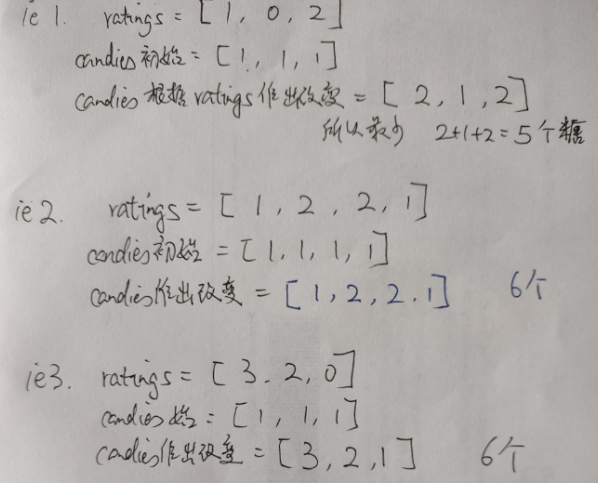 ie 1. ratings = [1, 0, 2]
candies初始 = [1, 1, 1]
candies 根据 ratings 作出改变 = [2, 1, 2]
所以最少 2+1+2=5个糖
ie 2. ratings = [1, 2, 2, 1]
candies初始 = [1, 1, 1, 1]
candies作出改变 = [1, 2, 2, 1] 6个
ie3. ratings = [3. 2, 0]
candies始 = [1, 1, 1]
candies作出改变 = [3, 2, 1] 6个